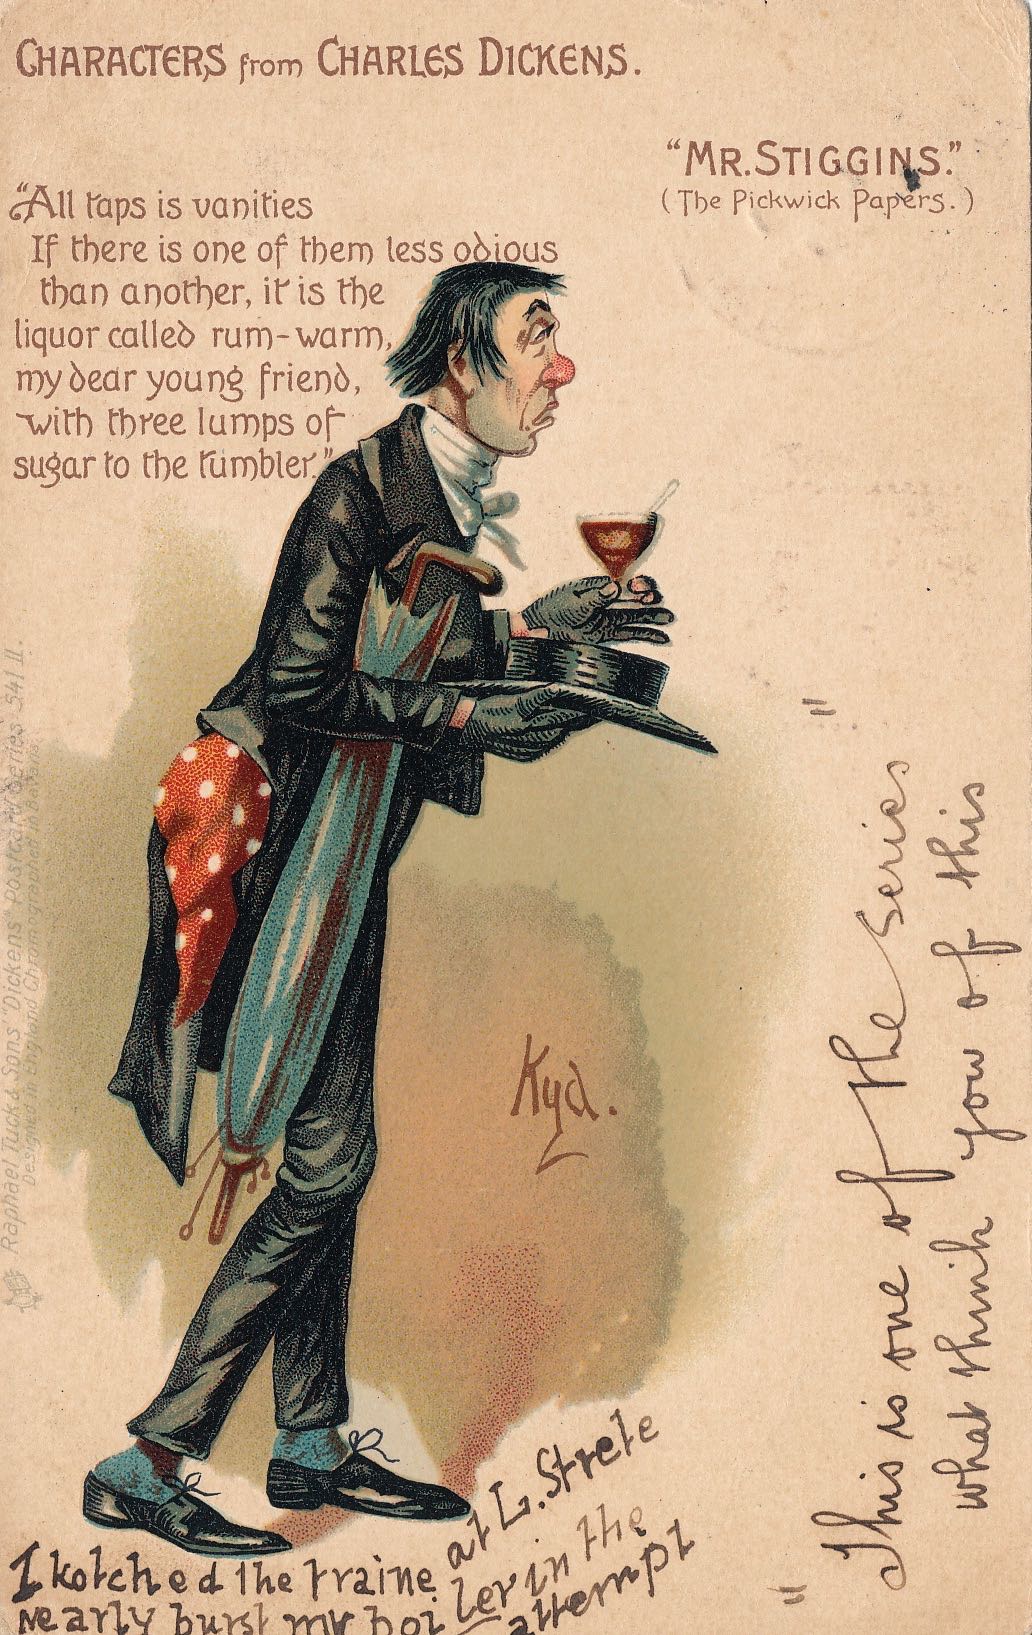 CHARACTERS from CHARLES DICKENS.
"MR. STIGGINS."
(The Pickwick Papers.)
"All taps is vanities
If there is one of them less odious
than another, it is the
liquor called rum-warm,
my dear young friend,
with three lumps of
sugar to the tumbler."
Kyd.
Raphael Tuck & Sons "Dickens" Postcard Series 541 II.
Designed in England Chromographed in Bavaria
I kotched the traine at L. Strete
nearly burst my boiler in the
attempt
"This is one of the series"
what think you of this